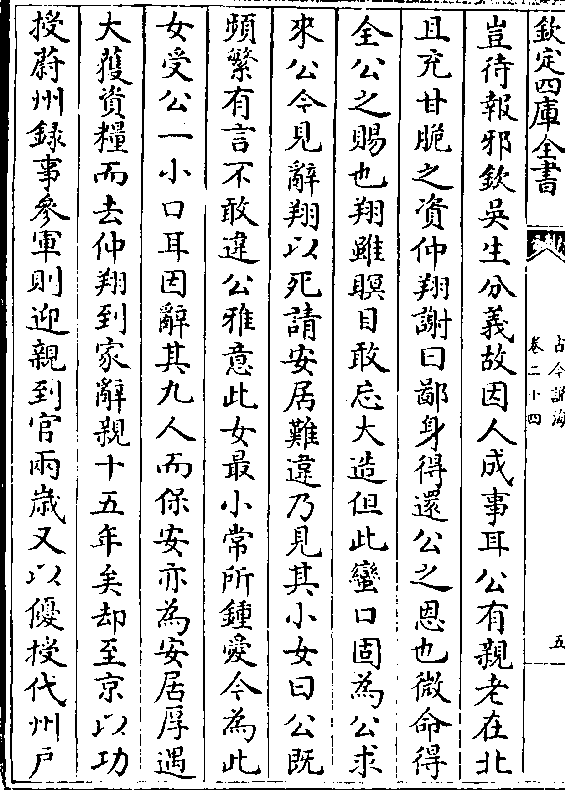 欽定四庫全書
古今說海
卷二十四
五
豈待報邪欽吳生分義故因人成事耳公有親老在北
且充甘脆之資仲翔謝曰鄙身得還公之恩也微命得
全公之賜也翔雖瞑目敢忘大造但此蠻口固為公求
來公今見辭翔以死請安居難違乃見其小女曰公既
頻繁有言不敢違公雅意此女最小常所鍾愛今為此
女受公一小口耳因辭其九人而保安亦為安居厚遇
大獲資糧而去仲翔到家辭親十五年矣却至京以功
授蔚州錄事參軍則迎親到官兩歲又以優授代州戶